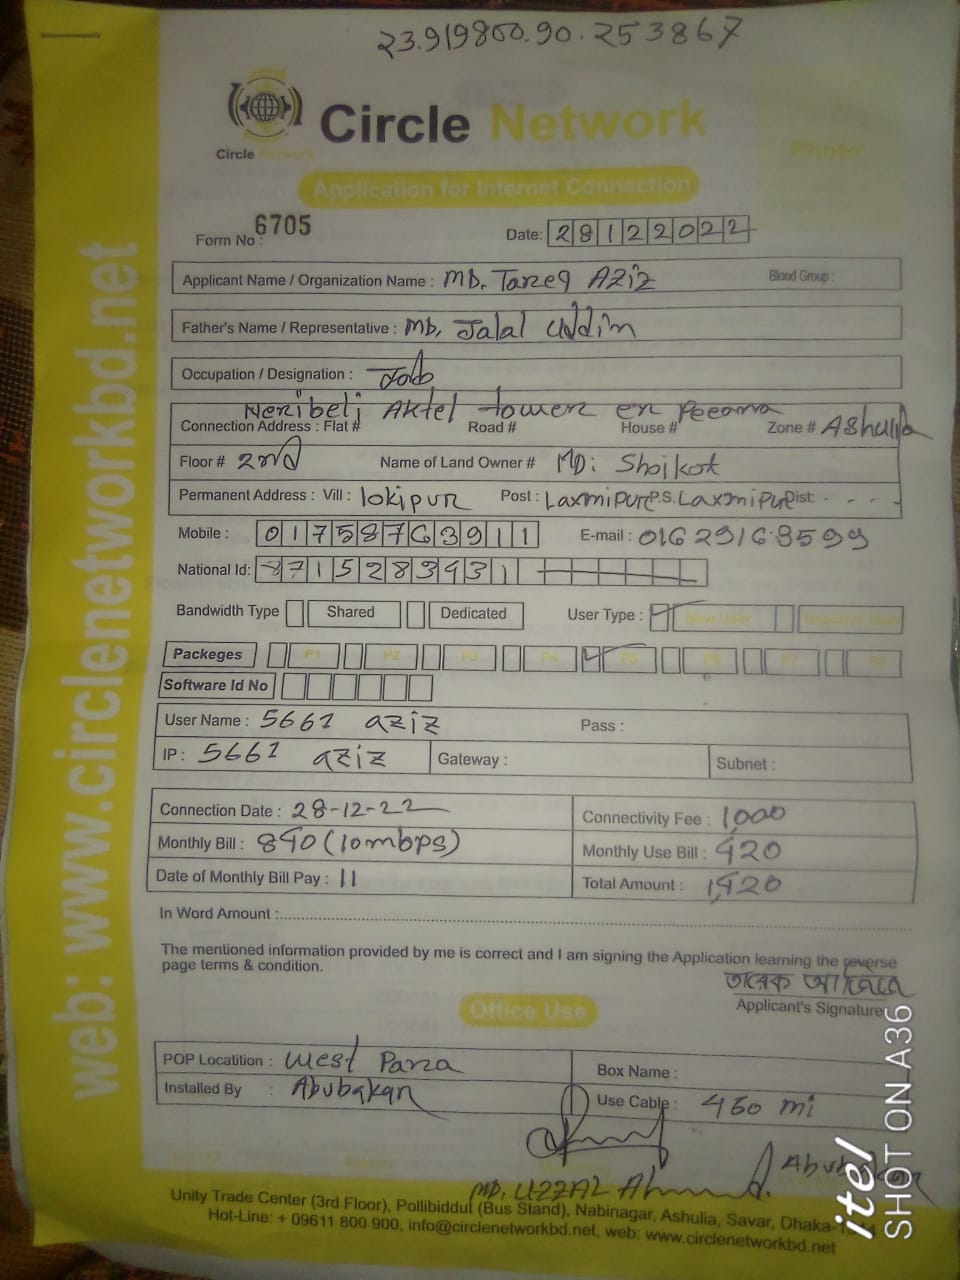 23.919800.90.253867
Circle Network
Circle Network
Photo
Application for Internet Connection
Form No : 6705
Date: 28122022
Applicant Name / Organization Name : MD. Tareq Aziz Blood Group :
Father's Name / Representative : MD. Jalal Uddin
Occupation / Designation : Job
Neribeli Aktel tower er
Connection Address : Flat # Road # House # Zone # Ashulia
Floor # 2nd Name of Land Owner # MD: Shoikot
Permanent Address : Vill : lokipur Post : Laxmipur P.S. Laxmipur Dist: - - -
Mobile : 01758763911 E-mail : 01629168599
National Id: 8715283931
Bandwidth Type Shared Dedicated User Type : New User
Packeges P1 P2 P3 P4 P5 P6 P7 P8
Software Id No
User Name : 5661 aziz Pass :
IP : 5661 aziz Gateway : Subnet :
Connection Date : 28-12-22 Connectivity Fee : 1,000
Monthly Bill : 840 (10mbps) Monthly Use Bill : 420
Date of Monthly Bill Pay : 11 Total Amount : 1,420
In Word Amount :
The mentioned information provided by me is correct and I am signing the Application learning the reverse
page terms & condition.
তারেক আজিজ
Applicant's Signature
Office Use
POP Locatition : West Para Box Name :
Installed By : Abubakar Use Cable : 460 mi
Abubakar
MD. UZZAL Ahmmed.
Unity Trade Center (3rd Floor), Pollibiddut (Bus Stand), Nabinagar, Ashulia, Savar, Dhaka-
Hot-Line: + 09611 800 900, info@circlenetworkbd.net, web: www.circlenetworkbd.net
web: www.circlenetworkbd.net
itel
SHOT ON A36